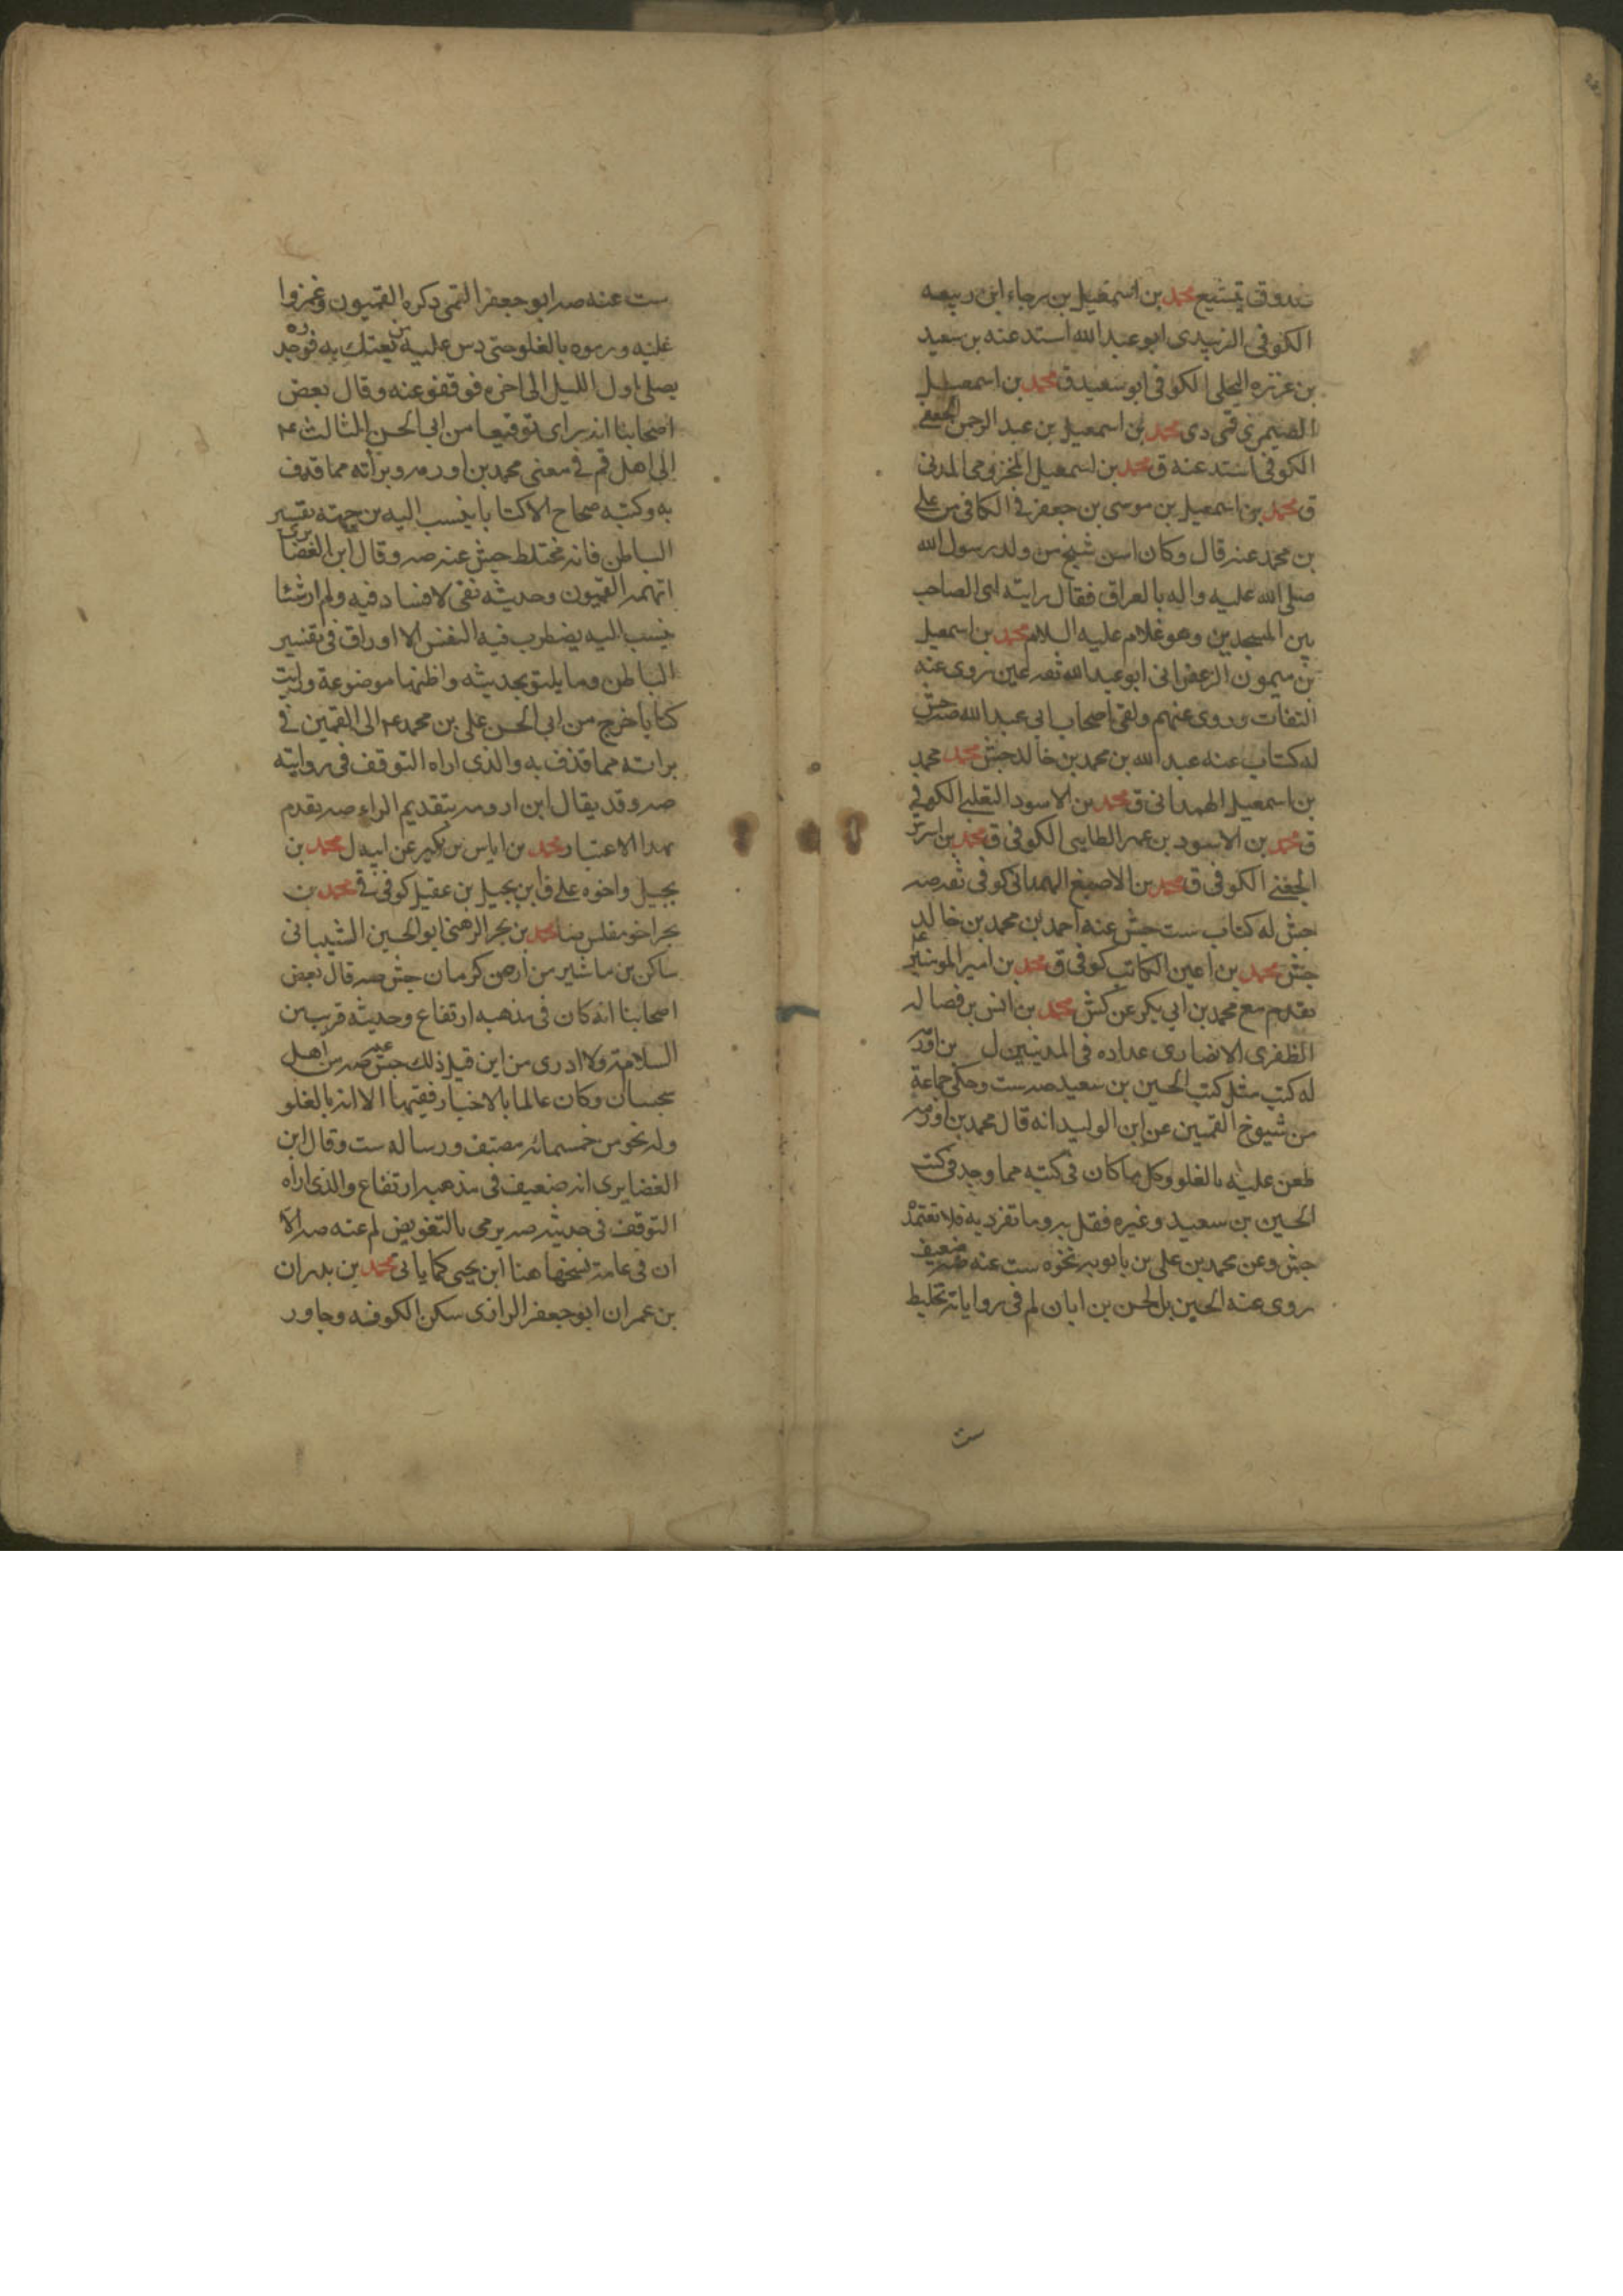 صدوق يتشيع محمد بن اسمعيل بن رجاء ابن ربيعه
الكوفى الزبيدى ابو عبد الله اسند عنه بن سعيد
بن عزره البجلى الكوفى ابو سعيد ق محمد بن اسمعيل
الصيمرى قمى دى محمد بن اسمعيل بن عبد الرحمن الجعفى
الكوفى اسند عنه ق محمد بن اسمعيل المخزومى المدنى
ق محمد بن اسمعيل بن موسى بن جعفر فى الكافى من على
بن محمد عنه قال وكان اسن شيخ من ولد رسول الله
صلى الله عليه واله بالعراق فقال رايته اى الصاحب
بين المسجدين وهو غلام عليه السلام محمد بن اسمعيل
بن ميمون الزعفرانى ابو عبد الله ثقه عين روى عنه
الثقات وروى عنهم ولقى اصحاب ابى عبد الله صه جش
له كتاب عنه عبد الله بن محمد بن خالد جش محمد محمد
بن اسمعيل الهمدانى ق محمد بن الاسود التغلبى الكوفى
ق محمد بن الاسود بن عمر الطايى الكوفى ق محمد بن
الجعفى الكوفى ق محمد بن الاصبغ الهمدانى كوفى ثقه صه
جش له كتاب ست جش عنه احمد بن محمد بن خالد
جش محمد بن اعين الكاتب كوفى ق محمد بن امير المومنين
تقدم مع محمد بن ابى بكر عن كش محمد بن انس بن فضاله
الظفرى الانصارى عداده فى المدنيين ل بن اورمه
له كتب مثل كتب الحسين بن سعيد صه ست وحكى جماعة
من شيوخ القميين عن ابن الوليد انه قال محمد بن اورمه
طعن عليه بالغلو وكل ما كان فى كتبه مما وجد فى كتب
الحسين بن سعيد وغيره فقل به وما تفرد به فلا تعتمد
جش وعن محمد بن على بن بابويه نحوه ست عنه ضعيف
روى عنه الحسين بل الحسن بن ابان لم فى رواياته تخليط
ست
ست عنه صه ابو جعفر القمى ذكره القميون وغمزوا
عليه ورموه بالغلو حتى دس عليه من يفتك به فوجده
يصلى اول الليل الى اخره فوقفو عنه وقال بعض
اصحابنا انه راى توقيعا من ابى الحسن الثالث ع
الى اهل قم فى معنى محمد بن اورمه وبرأته مما قذف
به وكتبه صحاح الا كتابا ينسب اليه من جهته تفسير
الباطن فانه مختلط جش عنه صه وقال ابن الغضايرى
اتهمه القميون وحديثه نقى لا فساد فيه ولم ار شئا
ينسب اليه يضطرب فيه النفس الا اوراق فى تفسير
الباطن وما يليق بحديثه واظنها موضوعة ورايت
كتابا خرج من ابى الحسن على بن محمد ع الى القميين فى
براته مما قذف به والذى اراه التوقف فى روايته
صه وقد يقال ابن ارومه بتقديم الراء صه تقدم
بهذا الاعتبار محمد بن اياس بن بكير عن ابيه ل محمد بن
بجيل واخوه على ق ابن بجيل بن عقيل كوفى ق محمد بن
بحر اخو مفلس ضا محمد بن بحر الرهنى ابو الحسين الشيبانى
ساكن بن ماشير من ارض كرمان جش صه قال بعض
اصحابنا انه كان فى مذهبه ارتفاع وحديثه قريب من
السلامة ولا ادرى من اين قيل ذلك جش عنه صه من اهل
سجستان وكان عالما بالاخبار فقيها الا انه بالغلو
وله نحو من خمسمائه مصنف ورساله ست وقال ابن
الغضايرى انه ضعيف فى مذهبه ارتفاع والذى اراه
التوقف فى حديثه صه يرمى بالتفويض لم عنه صه الا
ان فى عامة نسخها هنا ابن يحيى كما ياتى محمد بن بدران
بن عمران ابو جعفر الرازى سكن الكوفه وجاور